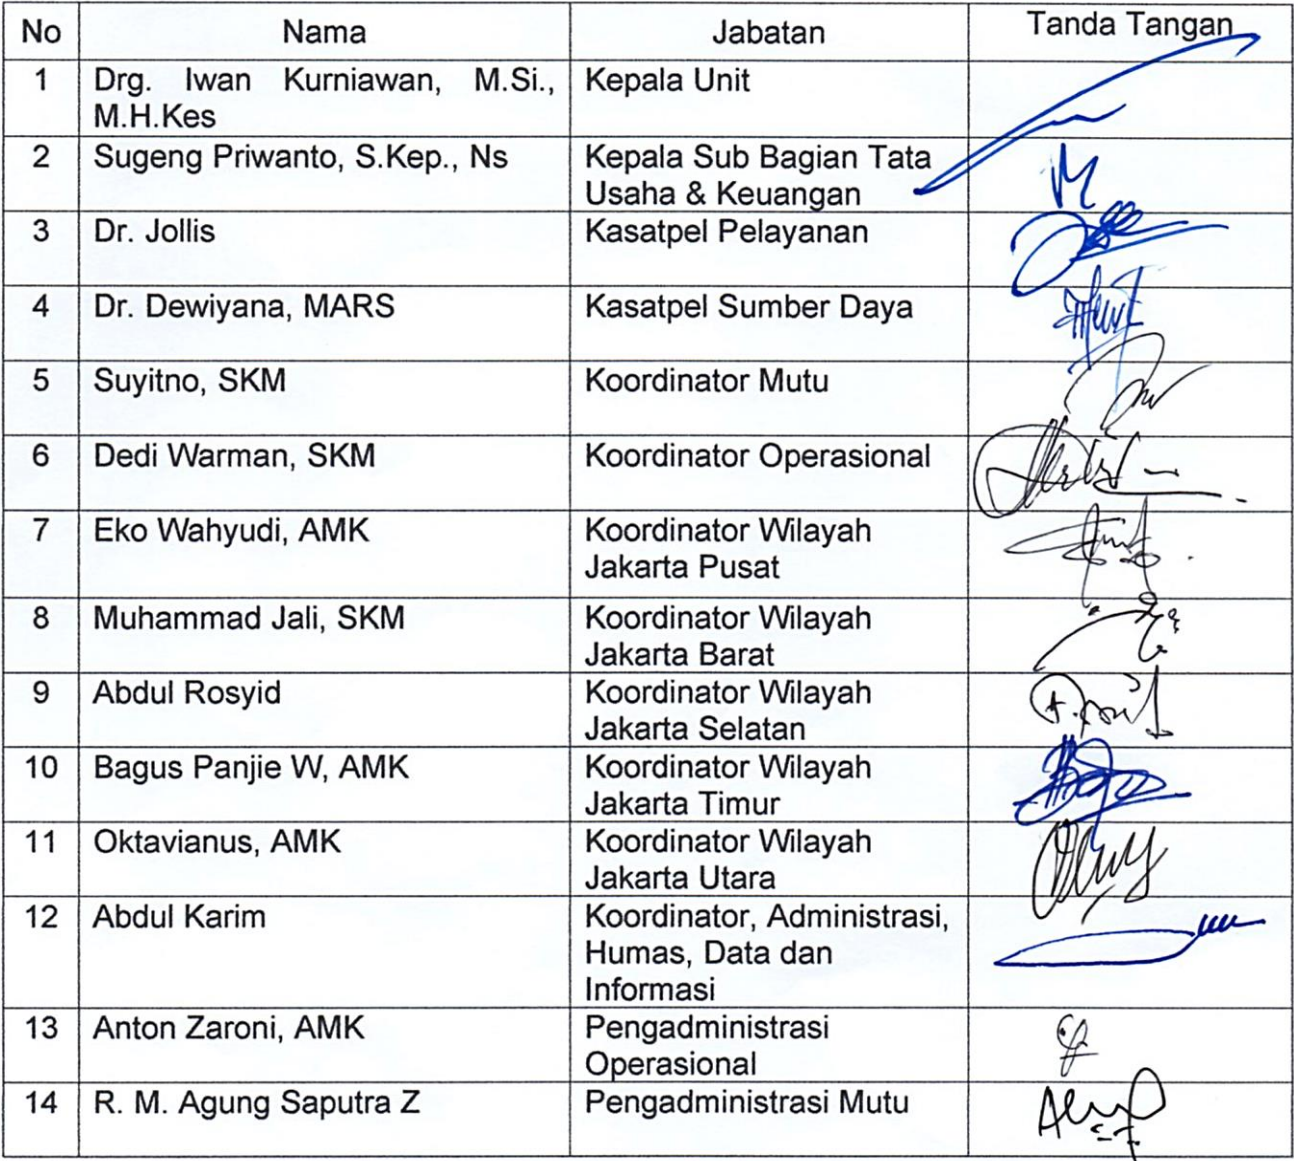 No Nama Jabatan Tanda Tangan
1 Drg. Iwan Kurniawan, M.Si., Kepala Unit
M.H.Kes
2 Sugeng Priwanto, S.Kep., Ns Kepala Sub Bagian Tata
Usaha & Keuangan
3 Dr. Jollis Kasatpel Pelayanan
4 Dr. Dewiyana, MARS Kasatpel Sumber Daya
5 Suyitno, SKM Koordinator Mutu
6 Dedi Warman, SKM Koordinator Operasional
7 Eko Wahyudi, AMK Koordinator Wilayah
Jakarta Pusat
8 Muhammad Jali, SKM Koordinator Wilayah
Jakarta Barat
9 Abdul Rosyid Koordinator Wilayah
Jakarta Selatan
10 Bagus Panjie W, AMK Koordinator Wilayah
Jakarta Timur
11 Oktavianus, AMK Koordinator Wilayah
Jakarta Utara
12 Abdul Karim Koordinator, Administrasi,
Humas, Data dan
Informasi
13 Anton Zaroni, AMK Pengadministrasi
Operasional
14 R. M. Agung Saputra Z Pengadministrasi Mutu